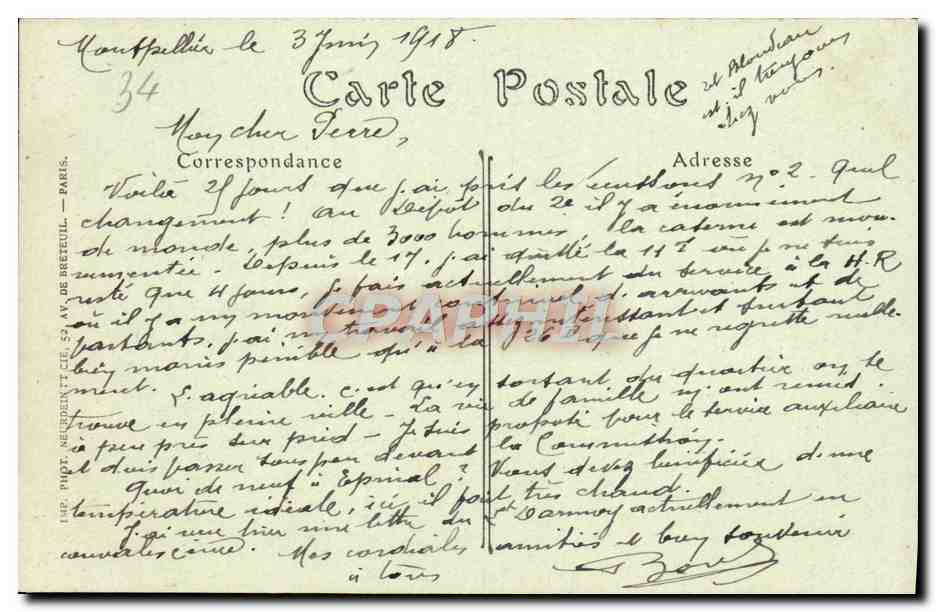 Montpellier le 3 Juin 1918.
34
et Blondeau
est il toujours
chez vous.
Carte Postale
Mon cher Pierre,
Correspondance
Adresse
Voilà 25 jours que j'ai pris les écussons n° 2. Quel
changement ! Au Dépôt du 2e il y a énormément
de monde, plus de 3000 hommes, la caserne est mou-
vementée. Depuis le 17, j'ai quitté la 11e où je ne suis
resté que 4 jours, je fais actuellement du service à la H.R
où il y a un mouvement continuel d'arrivants et de
partants, j'ai un travail assez intéressant et surtout
bien moins pénible qu'à la 26e que je ne regrette nulle-
ment. L'agréable c'est qu'en sortant du quartier on se
trouve en pleine ville - La vie de famille m'ont remis
à peu près sur pied - Je suis proposé pour le service auxiliaire
et dois passer sous peu devant la Commission.
Quoi de neuf à Epinal ? Vous devez bénéficier d'une
température idéale, ici, il fait très chaud.
J'ai une hier une lettre du Lt Dannoy actuellement en
convalescence. Mes cordiales amitiés et bon souvenir
à tous
IMP. PHOT. NEURDEIN ET CIE, 52, AV. DE BRETEUIL. — PARIS.
CPAPHIL